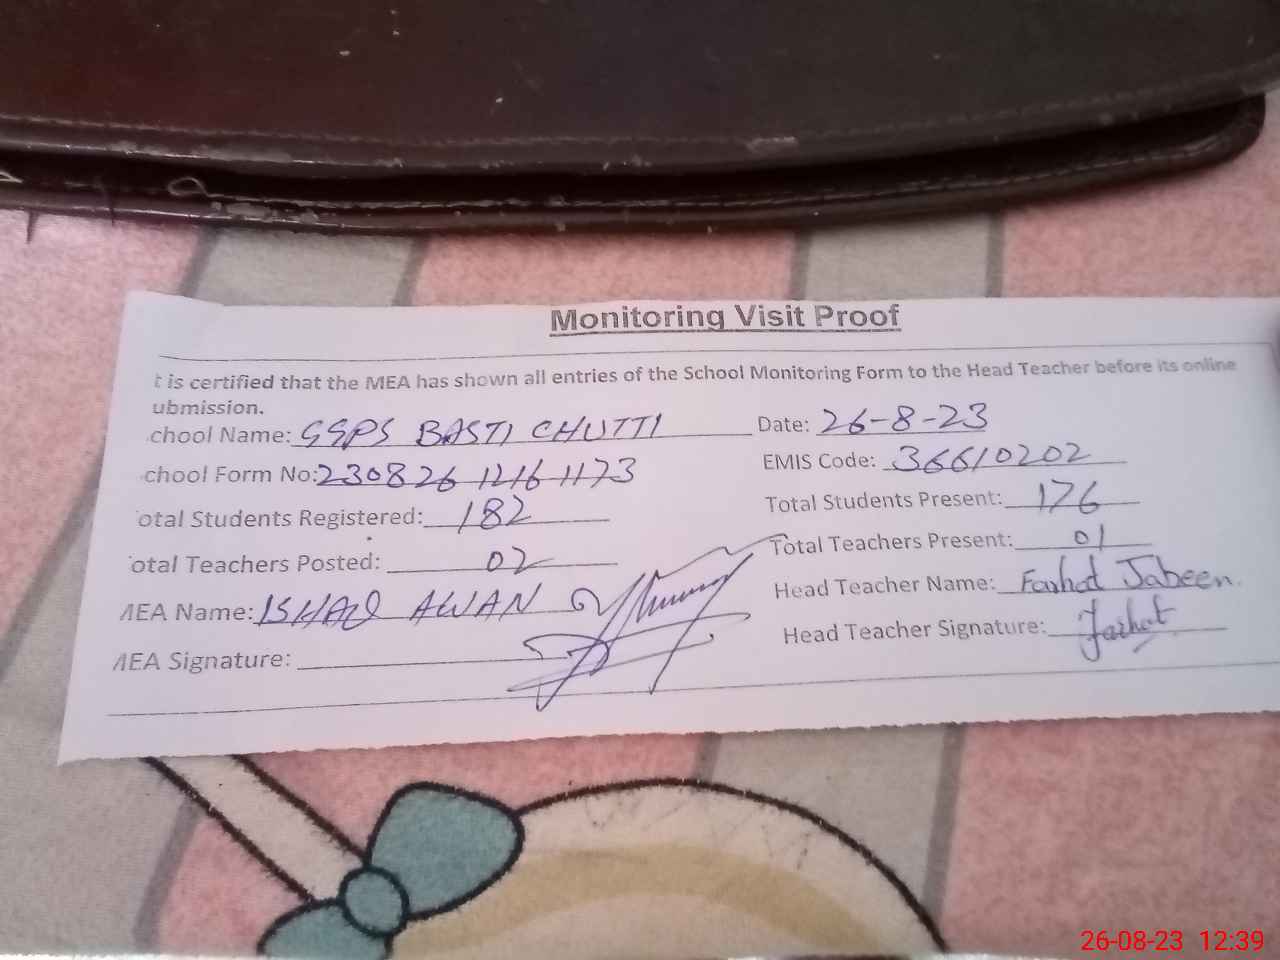 Monitoring Visit Proof
t is certified that the MEA has shown all entries of the School Monitoring Form to the Head Teacher before its online
ubmission.
chool Name: GGPS BASTI CHUTTI Date: 26-8-23
chool Form No: 230826 1216 1173 EMIS Code: 36610202
otal Students Registered: 182 Total Students Present: 176
otal Teachers Posted: 02 Total Teachers Present: 01
MEA Name: ISHAQ AWAN Head Teacher Name: Farhat Jabeen.
MEA Signature: Head Teacher Signature: Farhat
26-08-23 12:39